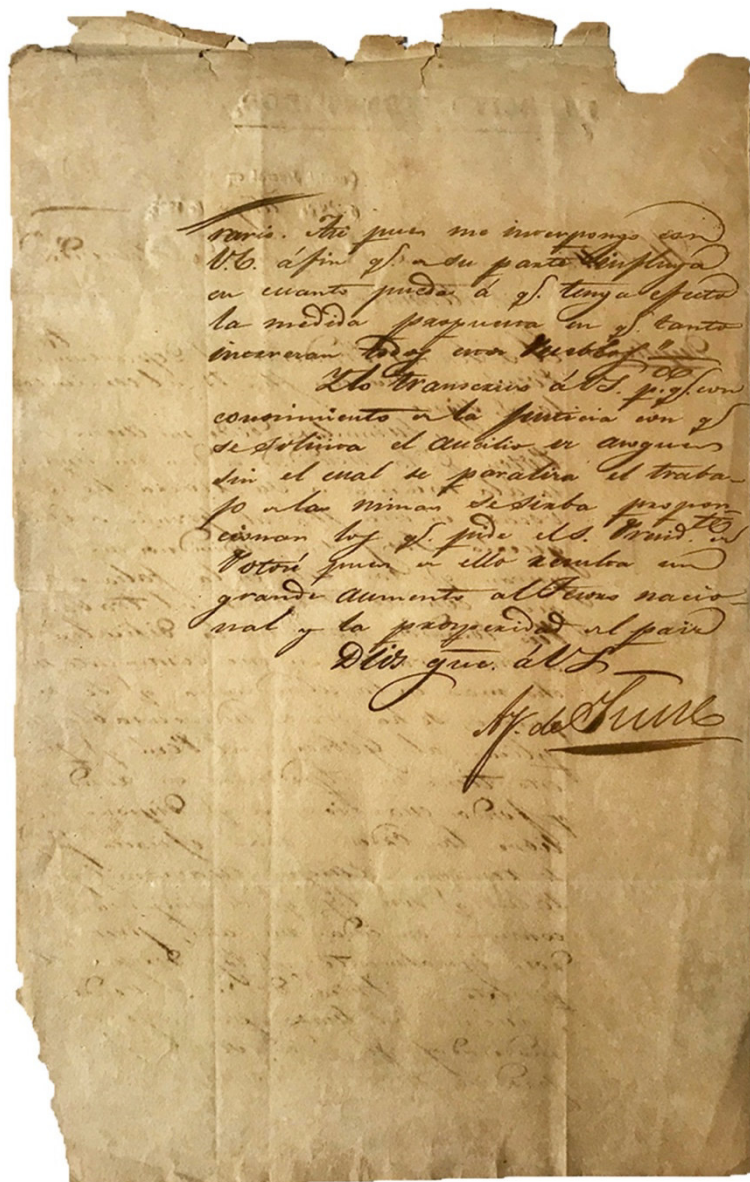 rario. Asi pues me interpongo con
V.E. á fin q.^e de su parte influya
en cuanto pueda á q.^e tenga efecto
la medida propuesta en q.^e tanto
interesan todos esos Pueblos"
Y lo transcrivo á V.S. p.^a q.^e con
conocimiento de la justicia con q.^e
se solicita el aucilio de asogues
sin el cual se paraliza el traba-
jo de las minas se sirba propor-
cionar los q.^e pide el S. Presid.^te de
Potosí pues de ello resulta un
grande aumento al Tesoro nacio-
nal y la prosperidad del pais
Dios gue. á V.S.
A. J. de Sucre